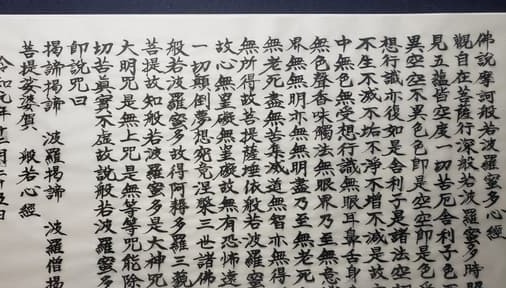 佛說摩訶般若波羅蜜多心經
觀自在菩薩行深般若波羅蜜多時照
見五蘊皆空度一切苦厄舍利子色不
異空空不異色色即是空空即是色受
想行識亦復如是舍利子是諸法空相
不生不滅不垢不淨不增不減是故空
中無色無受想行識無眼耳鼻舌身意
無色聲香味觸法無眼界乃至無意識
界無無明亦無無明盡乃至無老死亦
無老死盡無苦集滅道無智亦無得以
無所得故菩提薩埵依般若波羅蜜多
故心無罣礙無罣礙故無有恐怖遠
一切顛倒夢想究竟涅槃三世諸佛
般若波羅蜜多故得阿耨多羅三藐
菩提故知般若波羅蜜多是大神咒
大明咒是無上咒是無等等咒能除
切苦真實不虛故說般若波羅蜜多
即說咒曰
揭諦揭諦 波羅揭諦 波羅僧揭
菩提娑婆賀 般若心經
令和元年十二月二十五日